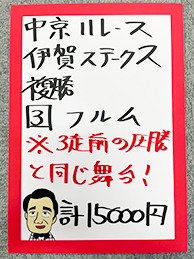 中京11レース
伊賀ステークス
複勝
3 フルム
※3走前の圧勝
と同じ舞台!
計15000円